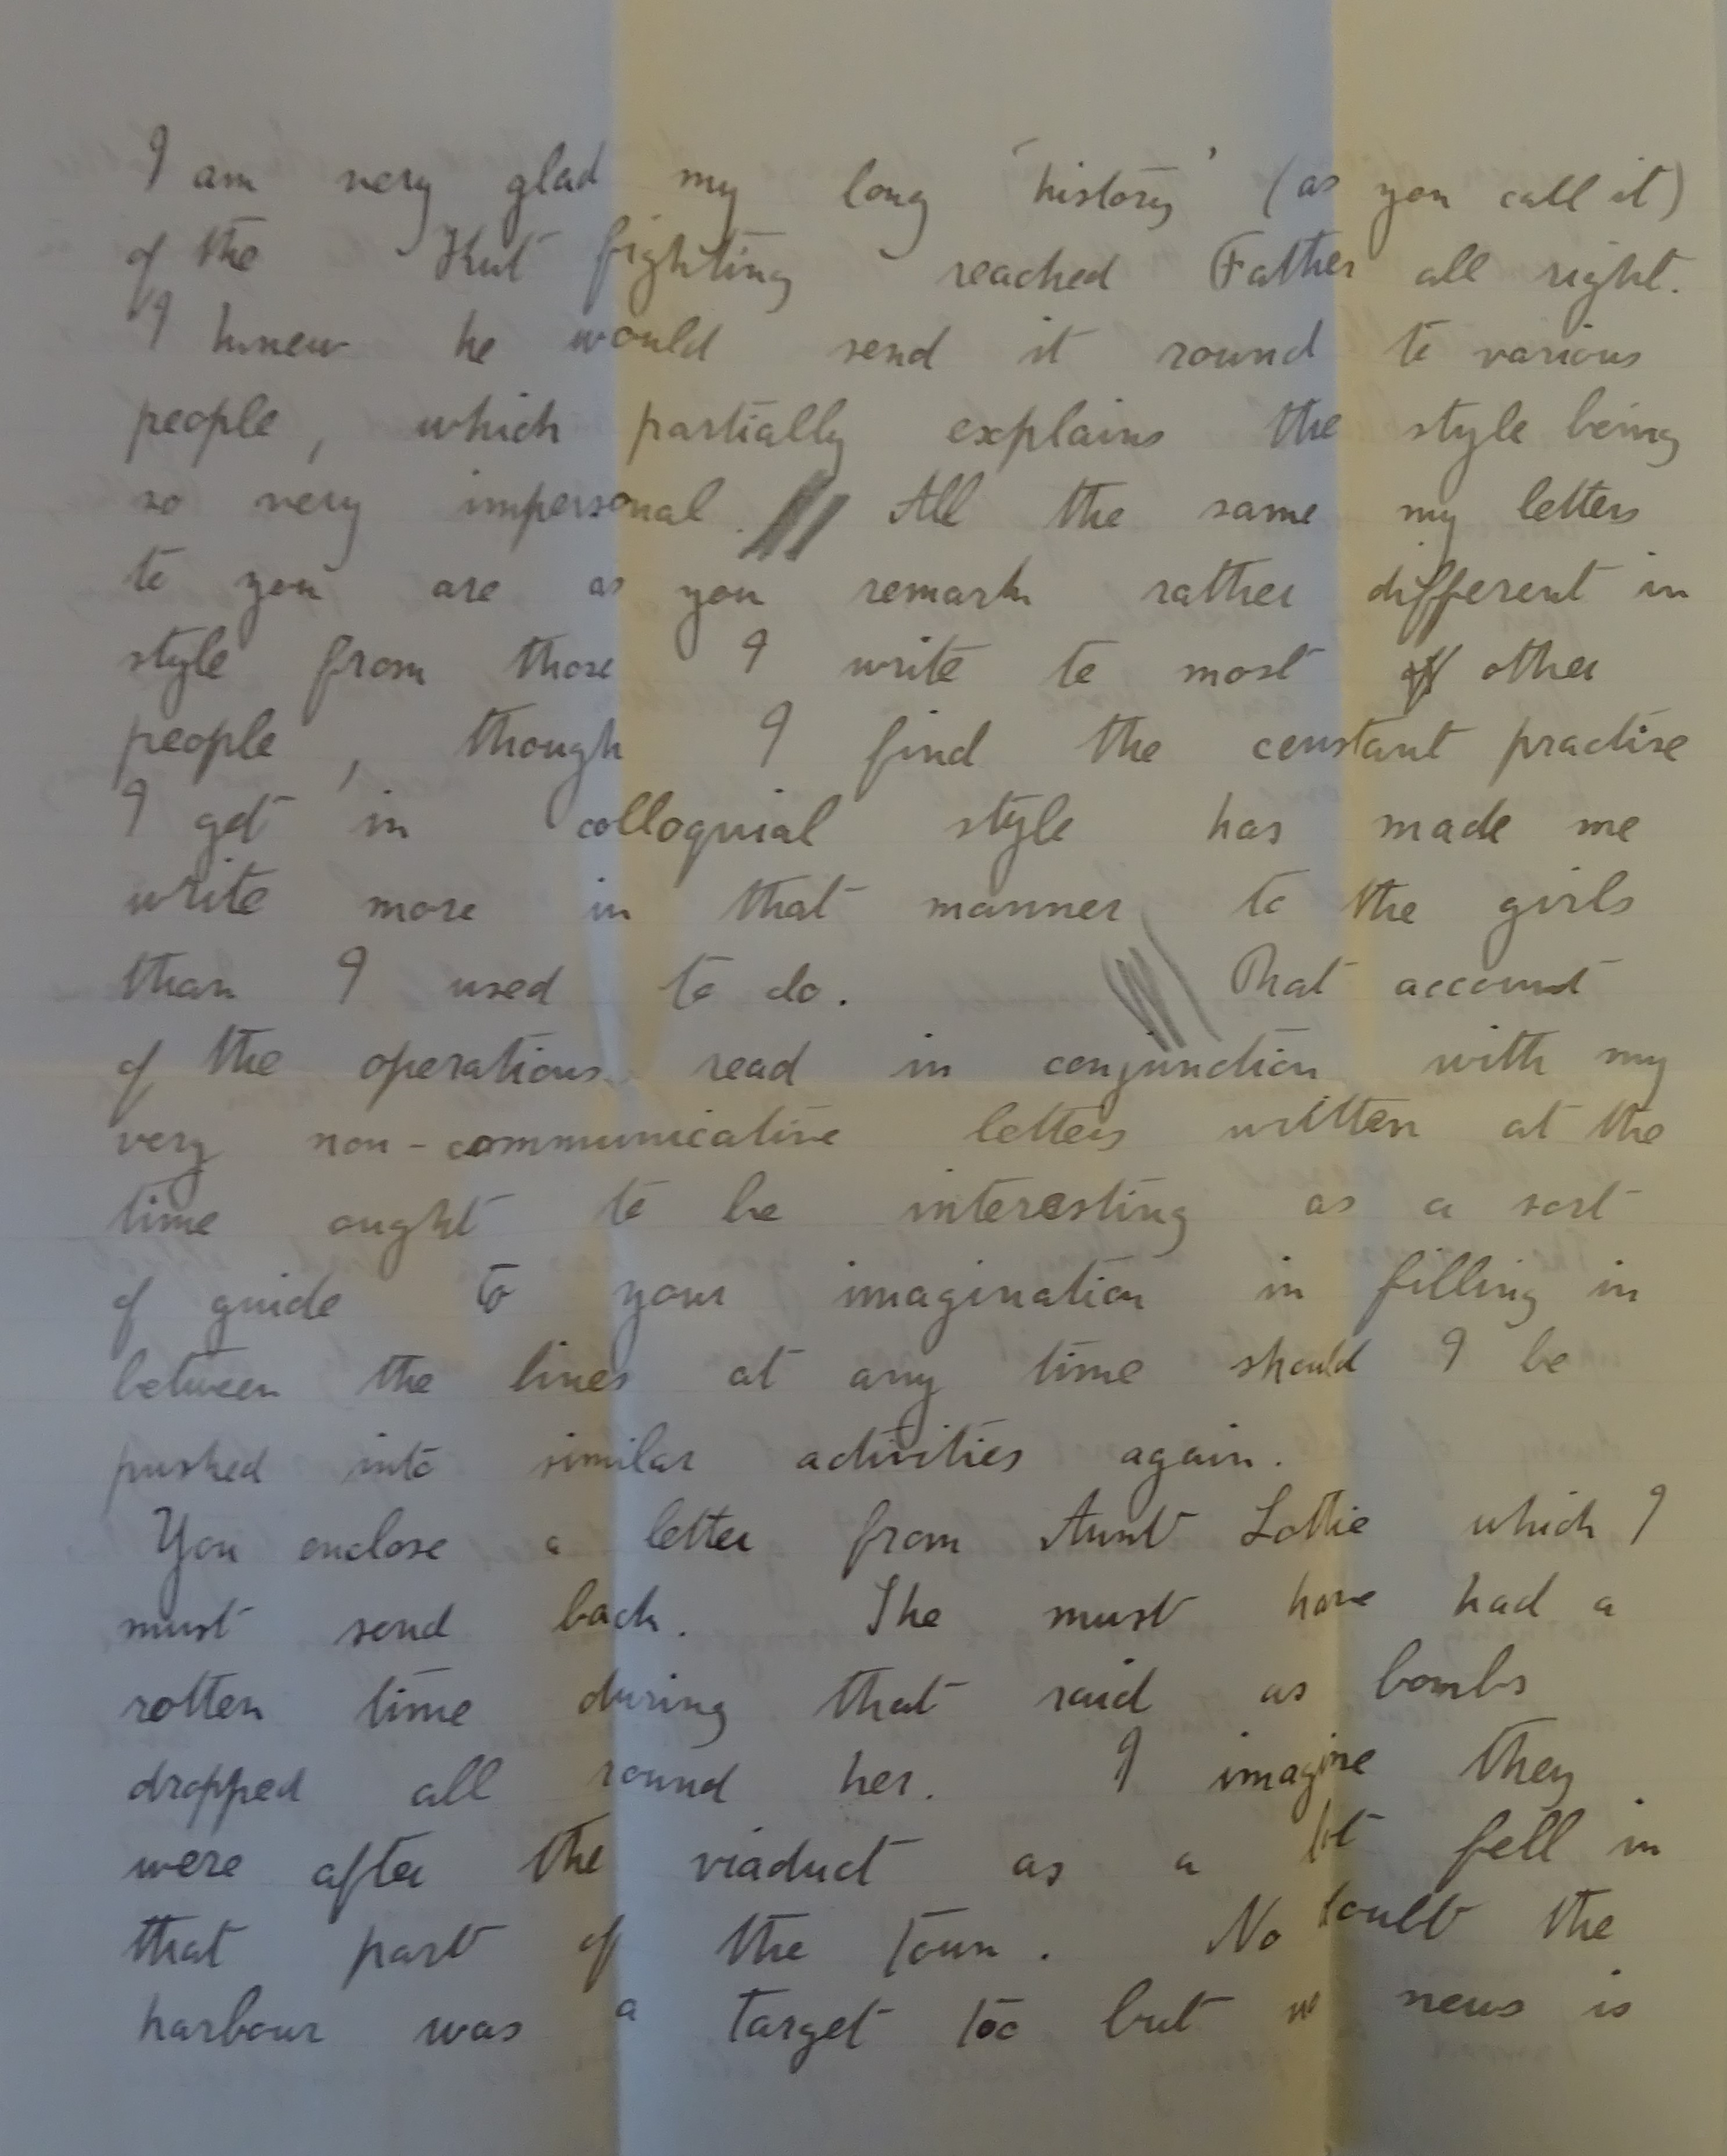 I am very glad my long 'history' (as you call it)
of the Kut fighting reached Father all right.
I knew he would send it round to various
people, which partially explains the style being
so very impersonal. All the same my letters
to you are as you remark rather different in
style from those I write to most other
people, though I find the constant practise
I get in colloquial style has made me
write more in that manner to the girls
than I used to do. That account
of the operations read in conjunction with my
very non-communicative letters written at the
time ought to be interesting as a sort
of guide to your imagination in filling in
between the lines at any time should I be
pushed into similar activities again.
You enclose a letter from Aunt Lottie which I
must send back. She must have had a
rotten time during that raid as bombs
dropped all round her. I imagine they
were after the viaduct as a lot fell in
that part of the town. No doubt the
harbour was a target too but news is